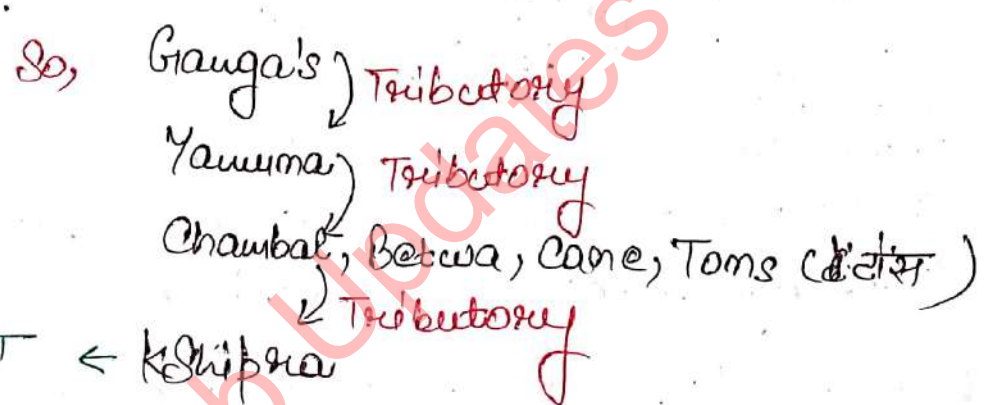 So, Ganga's Tributory
Yamuna Tributory
Chambal, Betwa, Cane, Toms (टोंस)
Tributory
← Kshipra
Updates